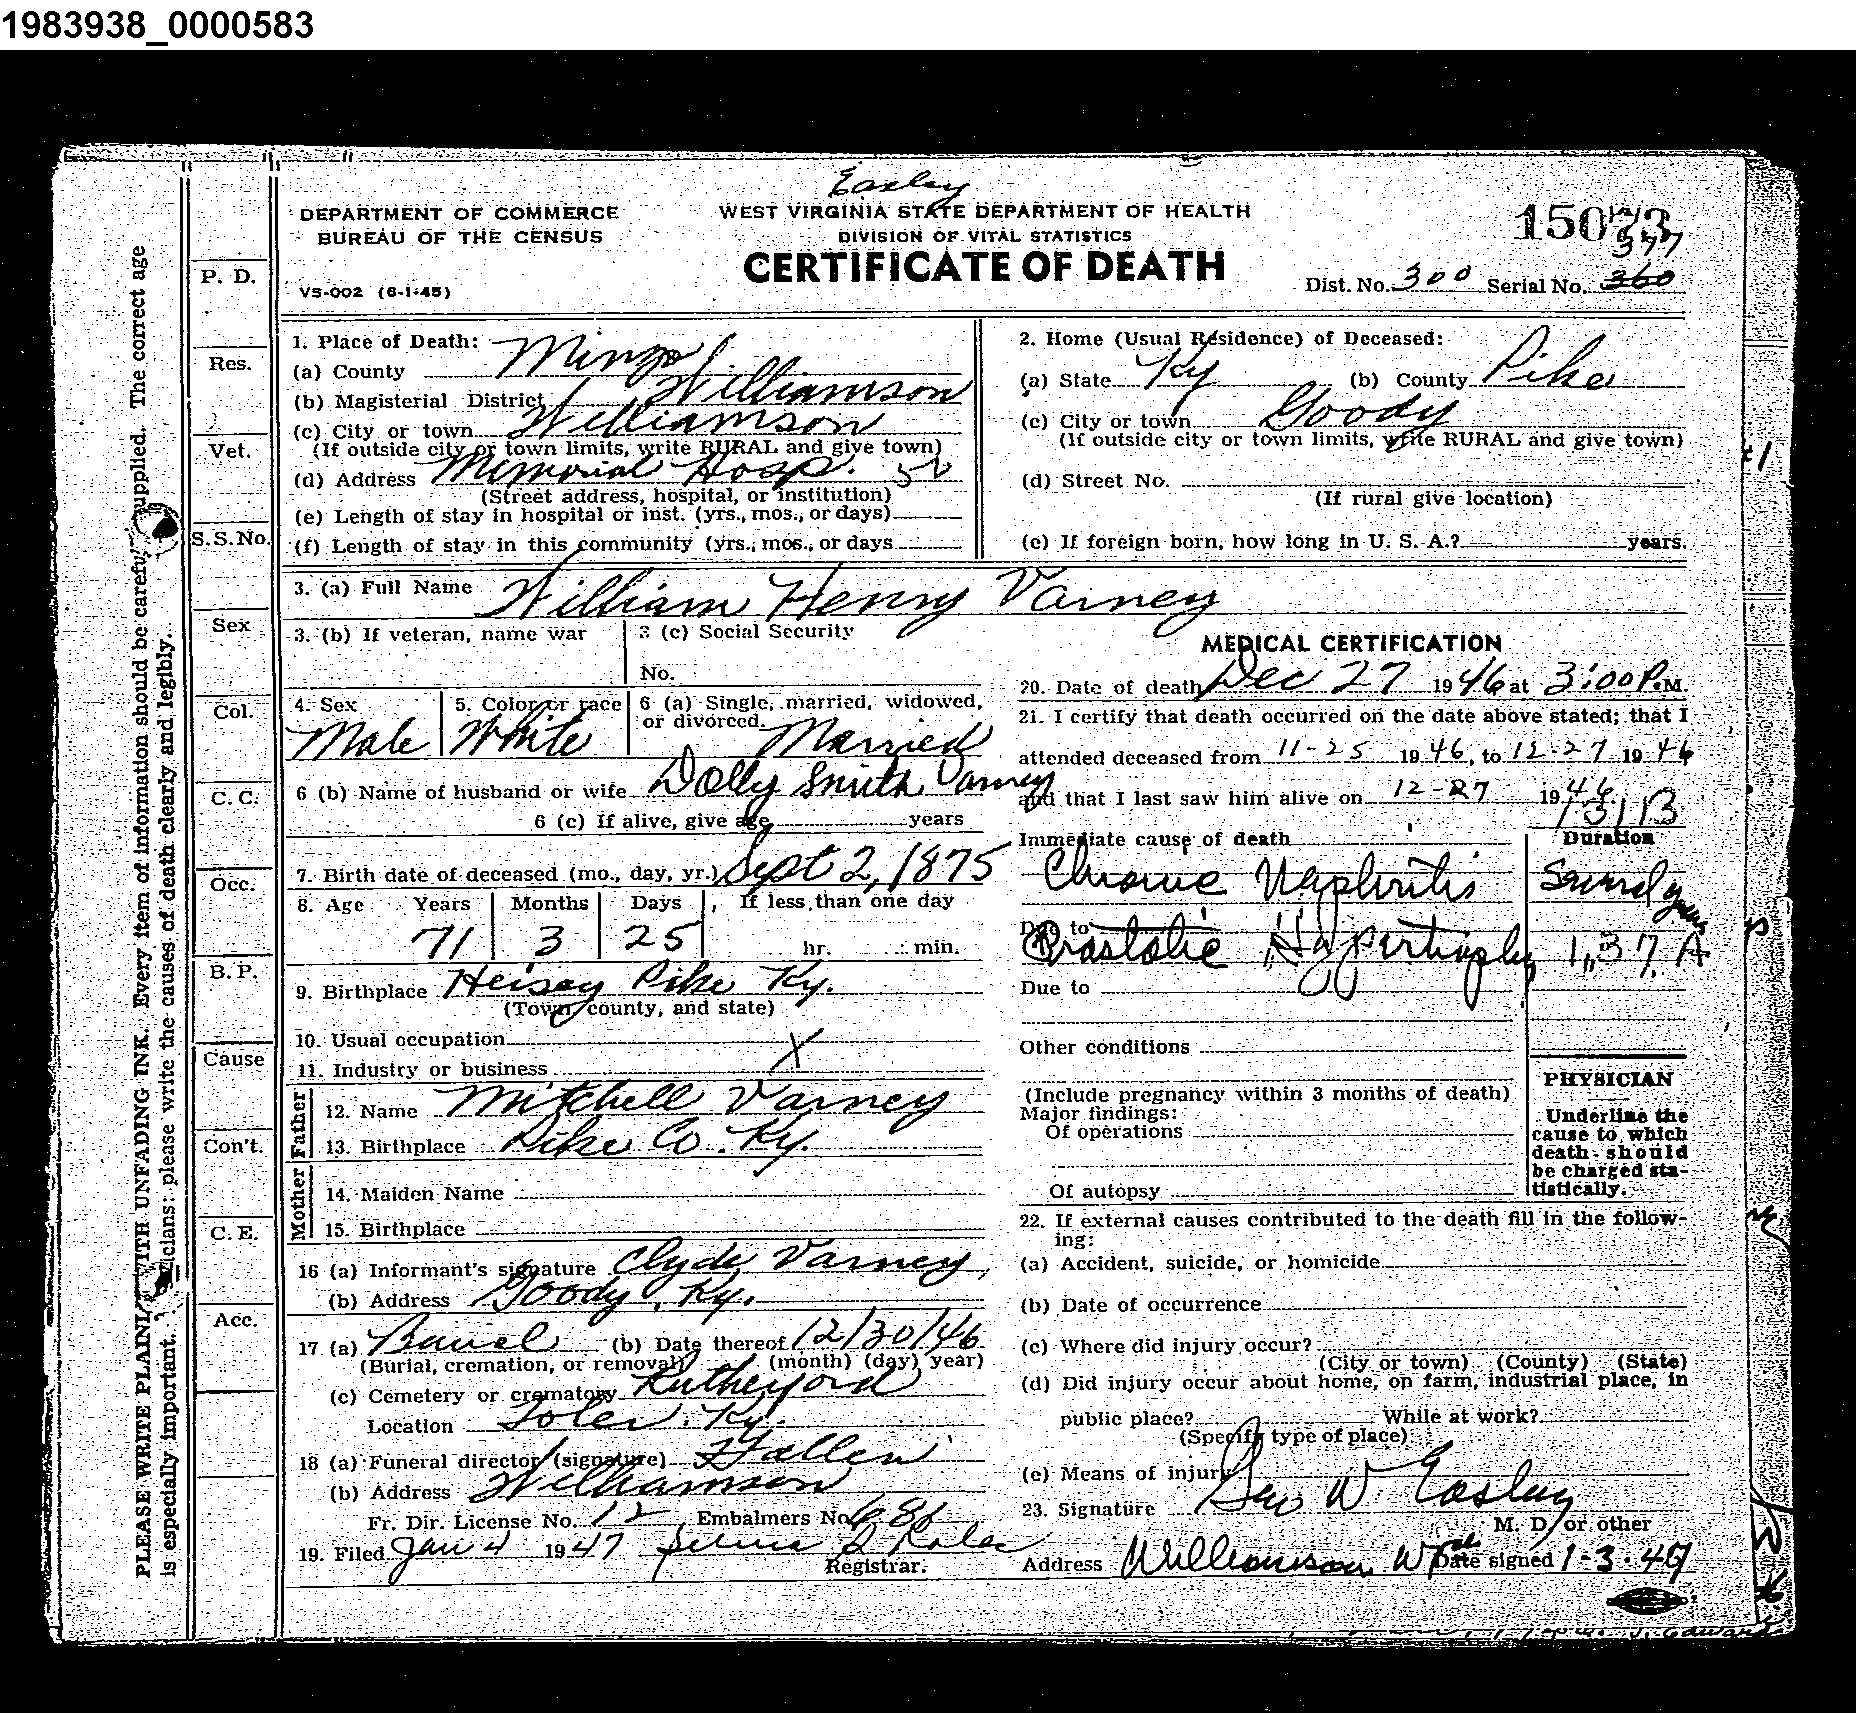 1983938_0000583
Easley
DEPARTMENT OF COMMERCE
BUREAU OF THE CENSUS
WEST VIRGINIA STATE DEPARTMENT OF HEALTH
DIVISION OF VITAL STATISTICS
CERTIFICATE OF DEATH
VS-002 (6-1-45)
15073
377
Dist. No. 300 Serial No. 360
PLEASE WRITE PLAINLY WITH UNFADING INK. Every item of information should be carefully supplied. The correct age
is especially important. Physicians: please write the causes of death clearly and legibly.
P. D.
Res.
Vet.
S.S. No.
Sex
Col.
C. C.
Occ.
B. P.
Cause
Con't.
C. E.
Acc.
1. Place of Death:
(a) County Mingo
(b) Magisterial District Williamson
(c) City or town Williamson
(If outside city or town limits, write RURAL and give town)
(d) Address Memorial Hosp. 50
(Street address, hospital, or institution)
(e) Length of stay in hospital or inst. (yrs., mos., or days)
(f) Length of stay in this community (yrs., mos., or days
2. Home (Usual Residence) of Deceased:
(a) State Ky (b) County Pike
(c) City or town Goody
(If outside city or town limits, write RURAL and give town)
(d) Street No.
(If rural give location)
(e) If foreign born, how long in U. S. A.? years.
3. (a) Full Name William Henry Varney
3. (b) If veteran, name war
3 (c) Social Security
No.
4. Sex Male
5. Color or race White
6 (a) Single, married, widowed,
or divorced. Married
6 (b) Name of husband or wife Dolly Smith Varney
6 (c) If alive, give age years
7. Birth date of deceased (mo., day, yr.) Sept 2, 1875
8. Age Years Months Days If less than one day
71 3 25 hr. min.
9. Birthplace Heisey Pike Ky.
(Town, county, and state)
10. Usual occupation
X
11. Industry or business
Father
12. Name Mitchell Varney
13. Birthplace Pike Co. Ky.
Mother
14. Maiden Name
15. Birthplace
16 (a) Informant's signature Clyde Varney,
(b) Address Goody, Ky.
17 (a) Bauel (b) Date thereof 12/30/46
(Burial, cremation, or removal) (month) (day) (year)
(c) Cemetery or crematory Rutherford
Location Toler, Ky.
18 (a) Funeral director (signature) Hallen
(b) Address Williamson
Fr. Dir. License No. 12 Embalmers No. 686
19. Filed Jan 4 1947
Registrar.
MEDICAL CERTIFICATION
20. Date of death Dec 27 1946 at 3:00 P.M.
21. I certify that death occurred on the date above stated; that I
attended deceased from 11-25 1946, to 12-27 1946
and that I last saw him alive on 12-27 1946
131B
Immediate cause of death Duration
Chronic Nephritis Several years
Due to
Prostatic Hypertrophy 137 A
Due to
Other conditions
(Include pregnancy within 3 months of death)
Major findings:
Of operations
Of autopsy
PHYSICIAN
Underline the
cause to which
death should
be charged sta-
tistically.
22. If external causes contributed to the death fill in the follow-
ing:
(a) Accident, suicide, or homicide
(b) Date of occurrence
(c) Where did injury occur?
(City or town) (County) (State)
(d) Did injury occur about home, on farm, industrial place, in
public place? While at work?
(Specify type of place)
(e) Means of injury
23. Signature Geo W Easley
M. D. or other
Address Williamson W Va Date signed 1-3-47